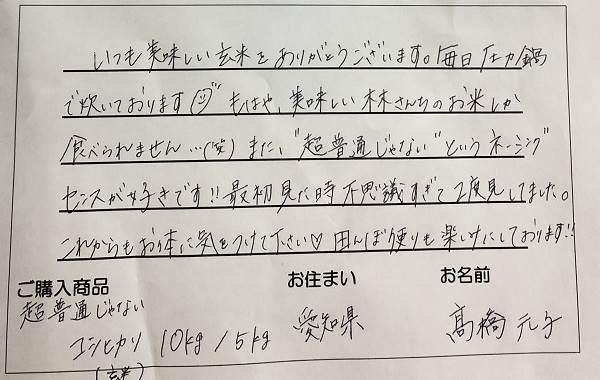 いつも美味しい玄米をありがとうございます。毎日圧力鍋
で炊いております もはや、美味しい林さんちのお米しか
食べられません…(笑) また、"超普通じゃない"というネーミング
センスが好きです!! 最初見た時不思議すぎて2度見してました。
これからもお体に気をつけて下さい♡ 田んぼ便りも楽しみにしております!!
ご購入商品 お住まい お名前
超普通じゃない
コシヒカリ 10kg / 5kg 愛知県 髙橋 元子
(玄米)